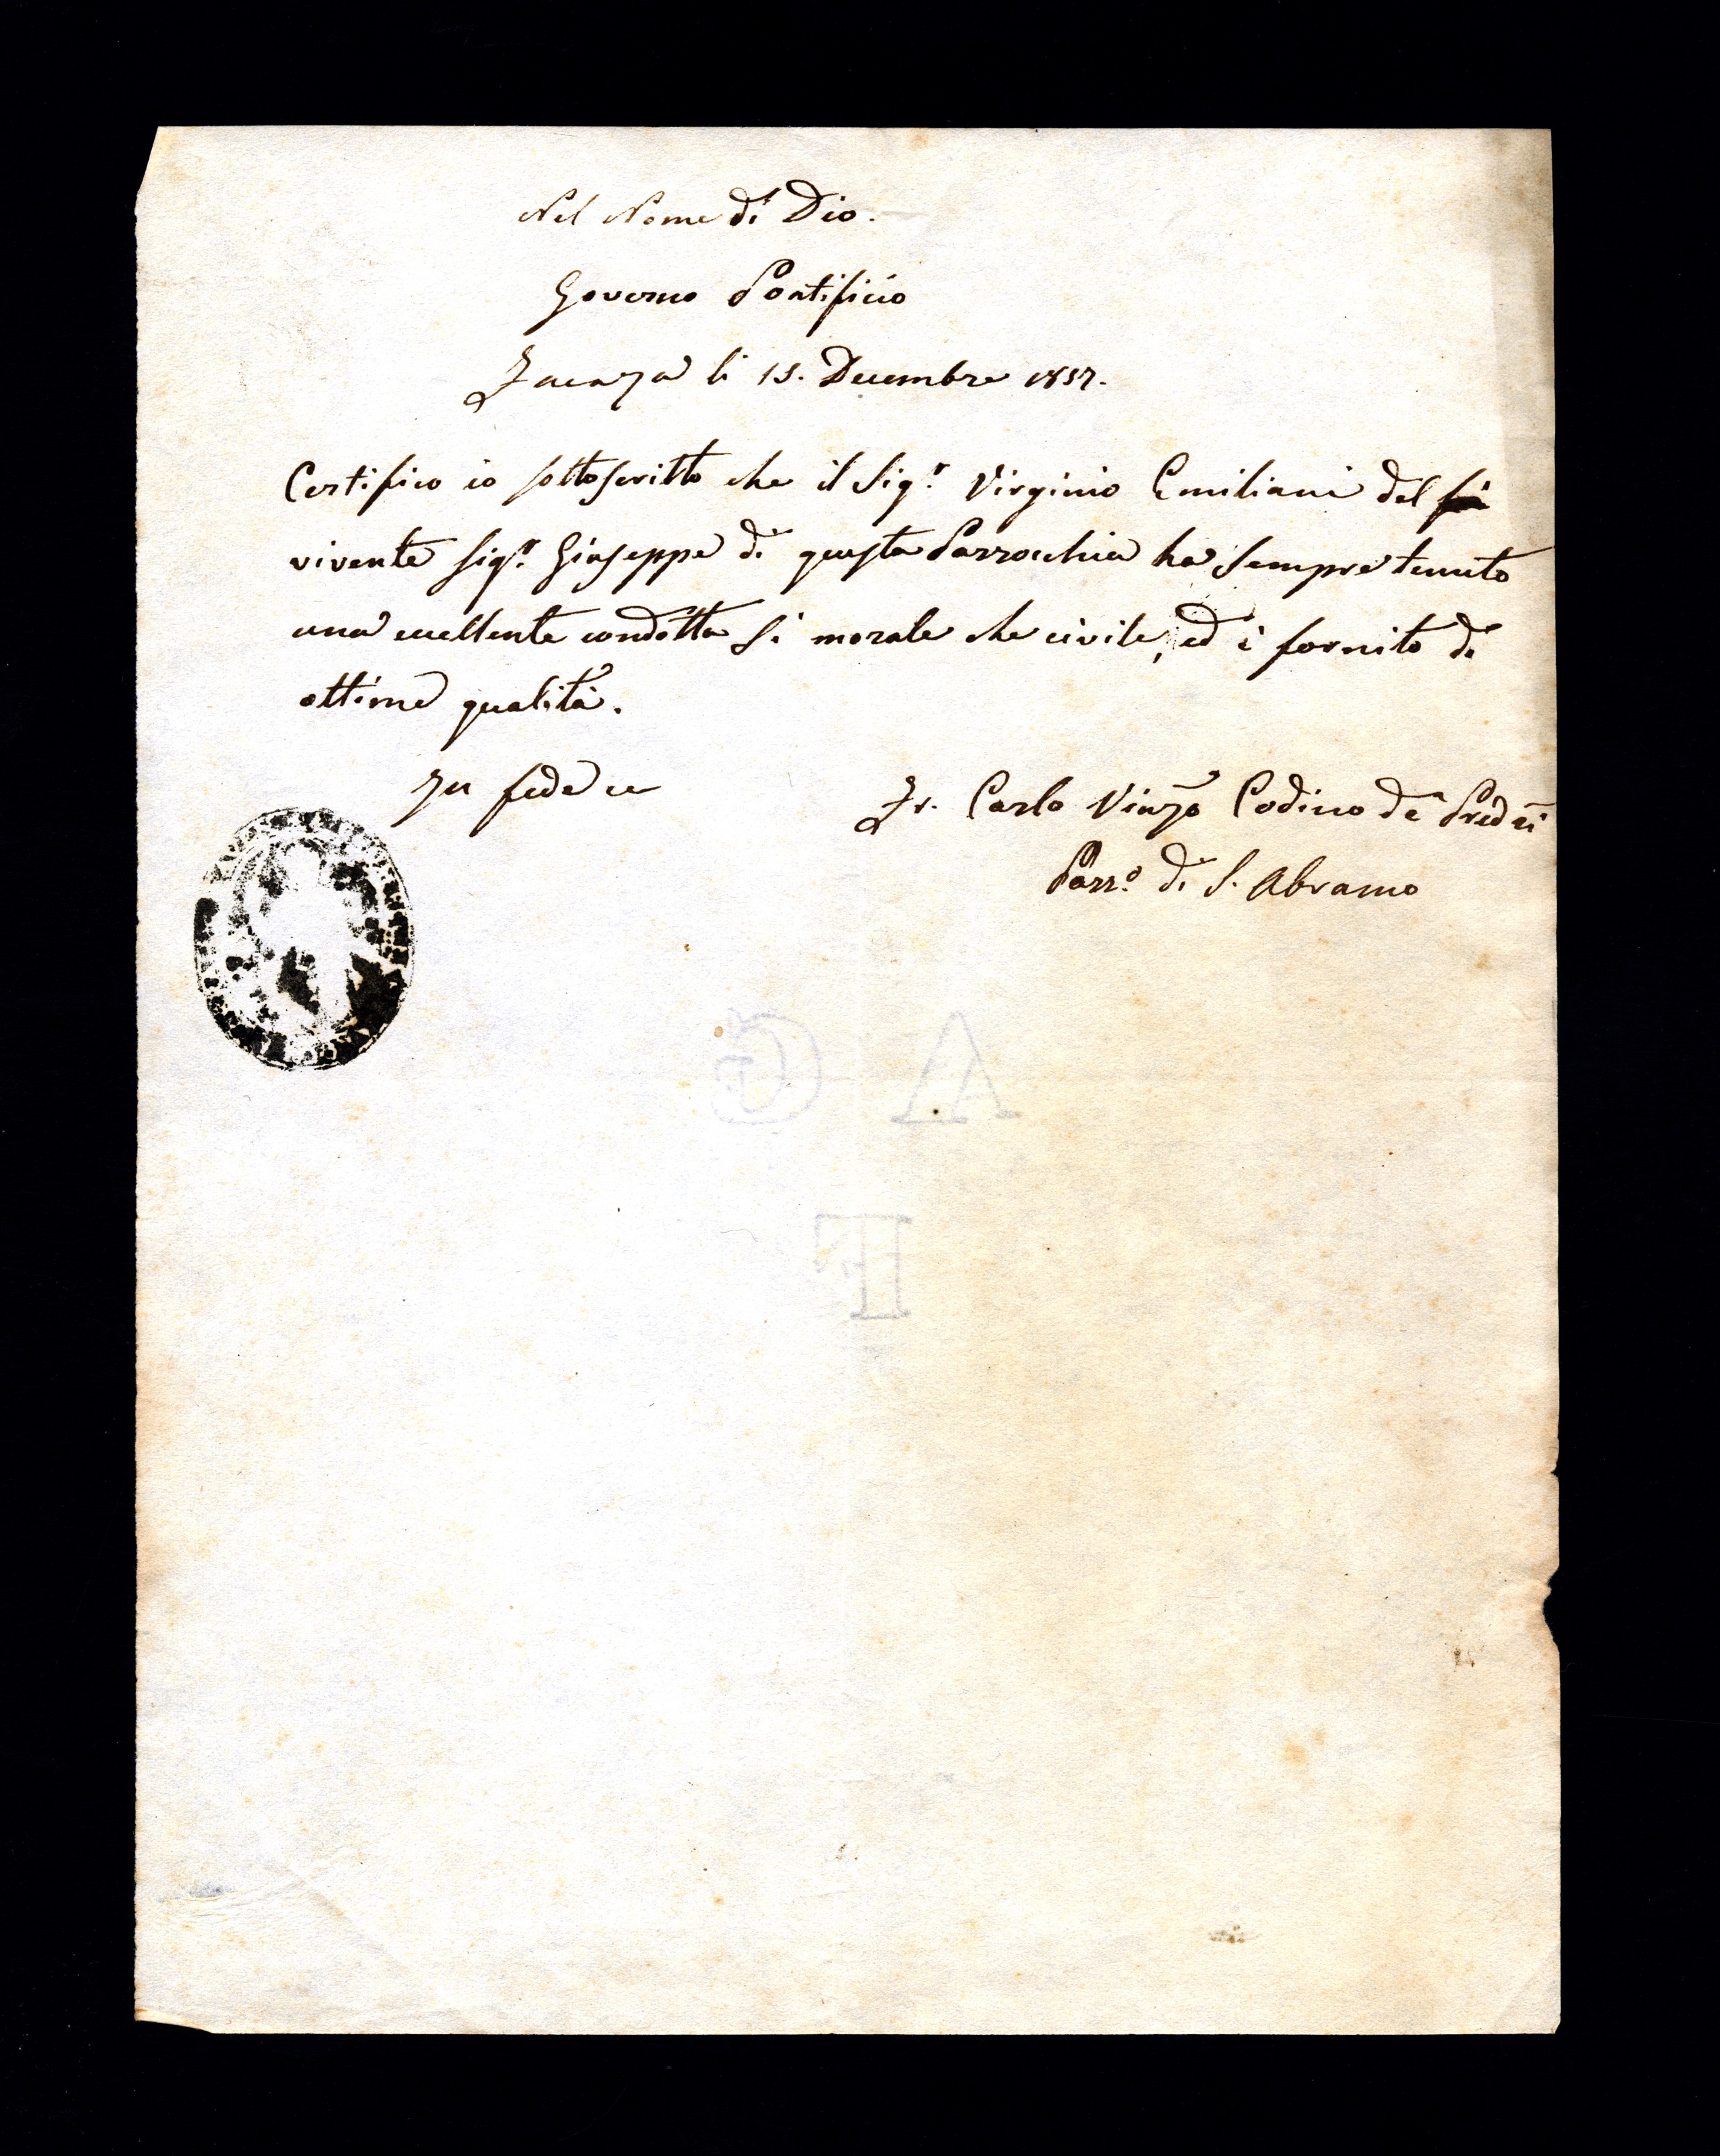 Nel Nome di Dio.
Governo Pontificio
Faenza li 15. Decembre 1857.
Certifico io sottoscritto che il Sigr. Virginio Emiliani del
vivente Sigr. Giuseppe di questa Parrocchia ha sempre tenuto
una eccellente condotta si morale che civile, ed è fornito di
ottime qualità.
In fede
Fr. Carlo Vinzo Codino de Pred.ri
Parr.o di S. Abramo
G A
F